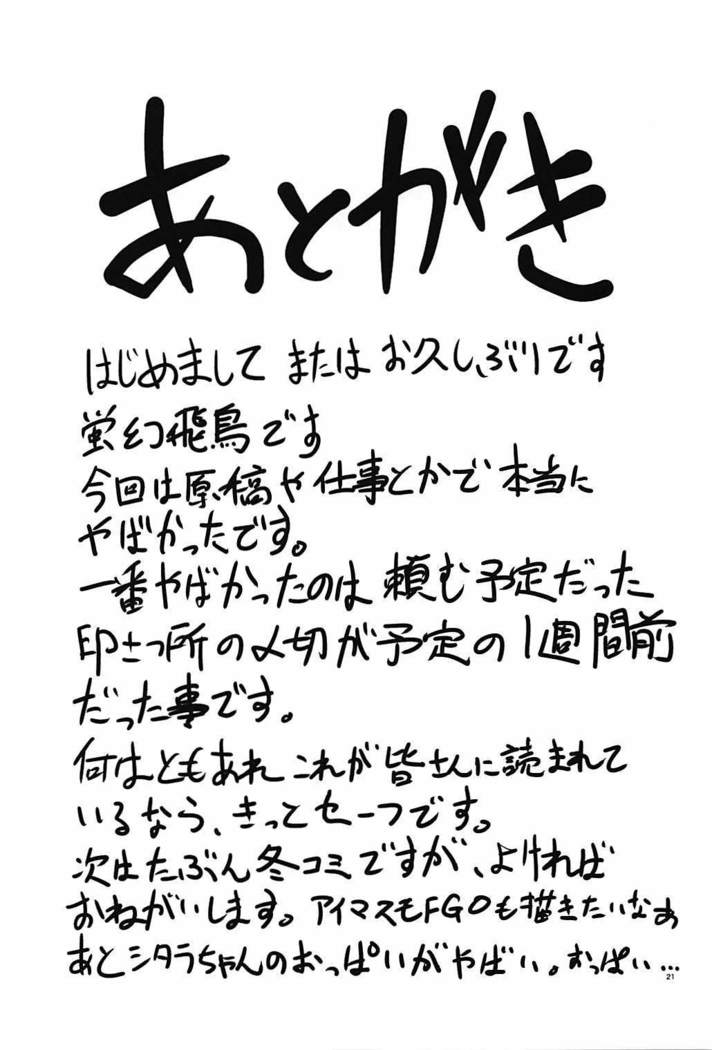 あとがき
はじめまして または お久しぶりです
蛍幻飛鳥です
今回は原稿や仕事とかで本当に
やばかったです。
一番やばかったのは 頼む予定だった
印さつ所の〆切が予定の1週間前
だった事です。
何はともあれ これが皆さんに読まれて
いるなら、きっとセーフです。
次はたぶん冬コミですが、よければ
おねがいします。アイマスもFGOも描きたいなぁ
あとシタラちゃんのおっぱいがやばい。おっぱい…
21